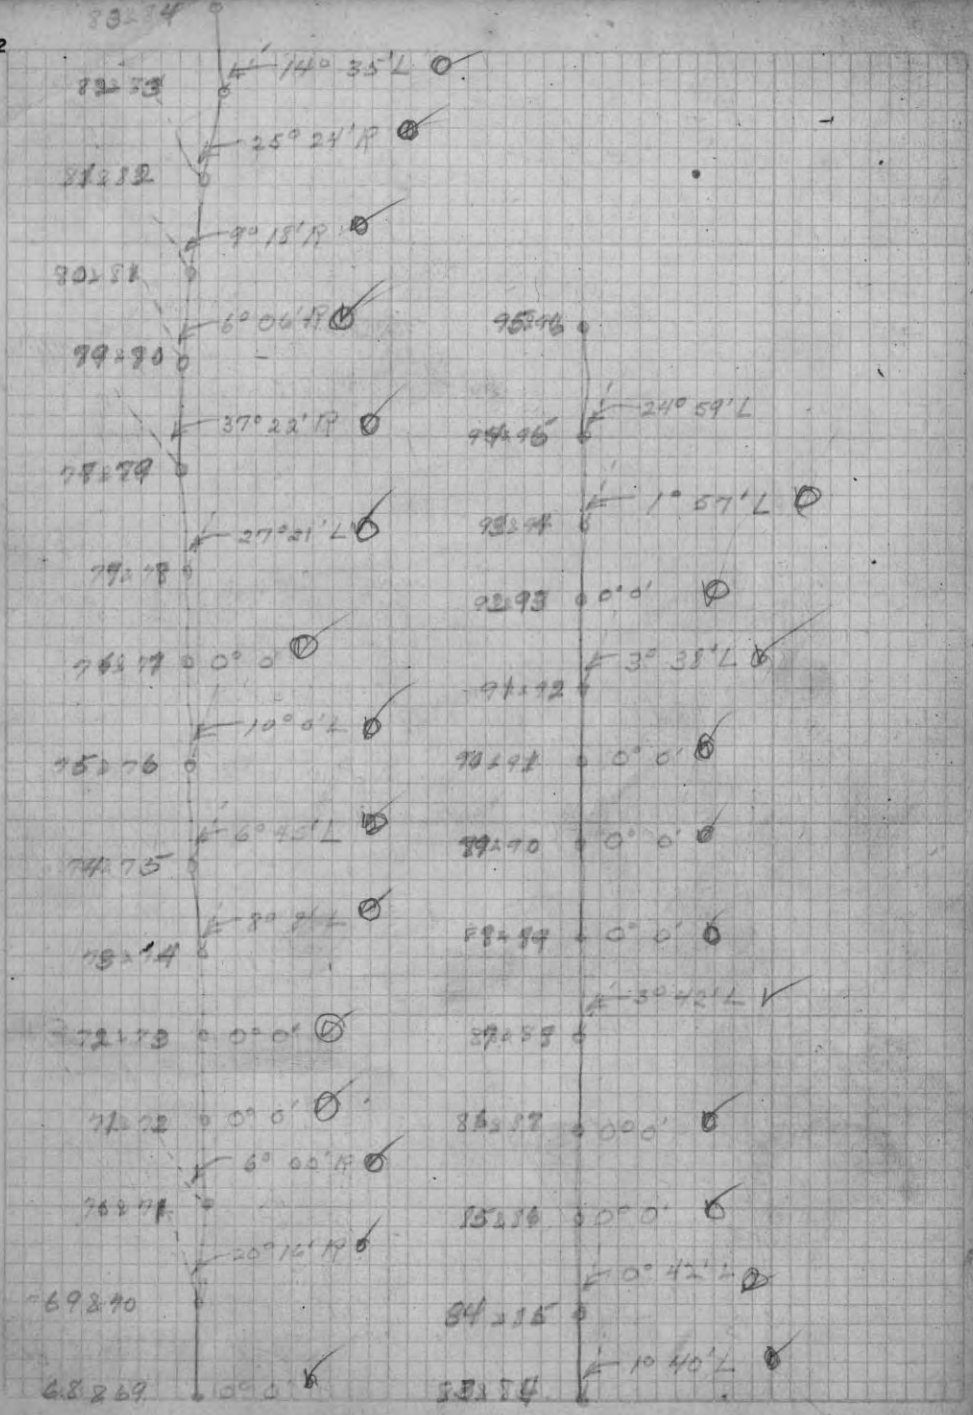 2
83&84
14° 35' L
82&83
25° 24' R
81&82
9° 18' R
80&81
6° 06' R
79&80
37° 22' R
78&79
27° 21' L
77&78
76&77 0° 0'
10° 0' L
75&76
6° 45' L
74&75
8° L
73&74
72&73 0° 0'
71&72 0° 0'
6° 00' R
70&71
20° 16' R
69&70
68&69 0° 0'
95&96
24° 59' L
94&95
1° 57' L
93&94
92&93 0° 0'
3° 38' L
91&92
90&91 0° 0'
89&90 0° 0'
88&89 0° 0'
3° 42' L
87&88
86&87 0° 0'
85&86 0° 0'
0° 42' L
84&85
1° 40' L
83&84